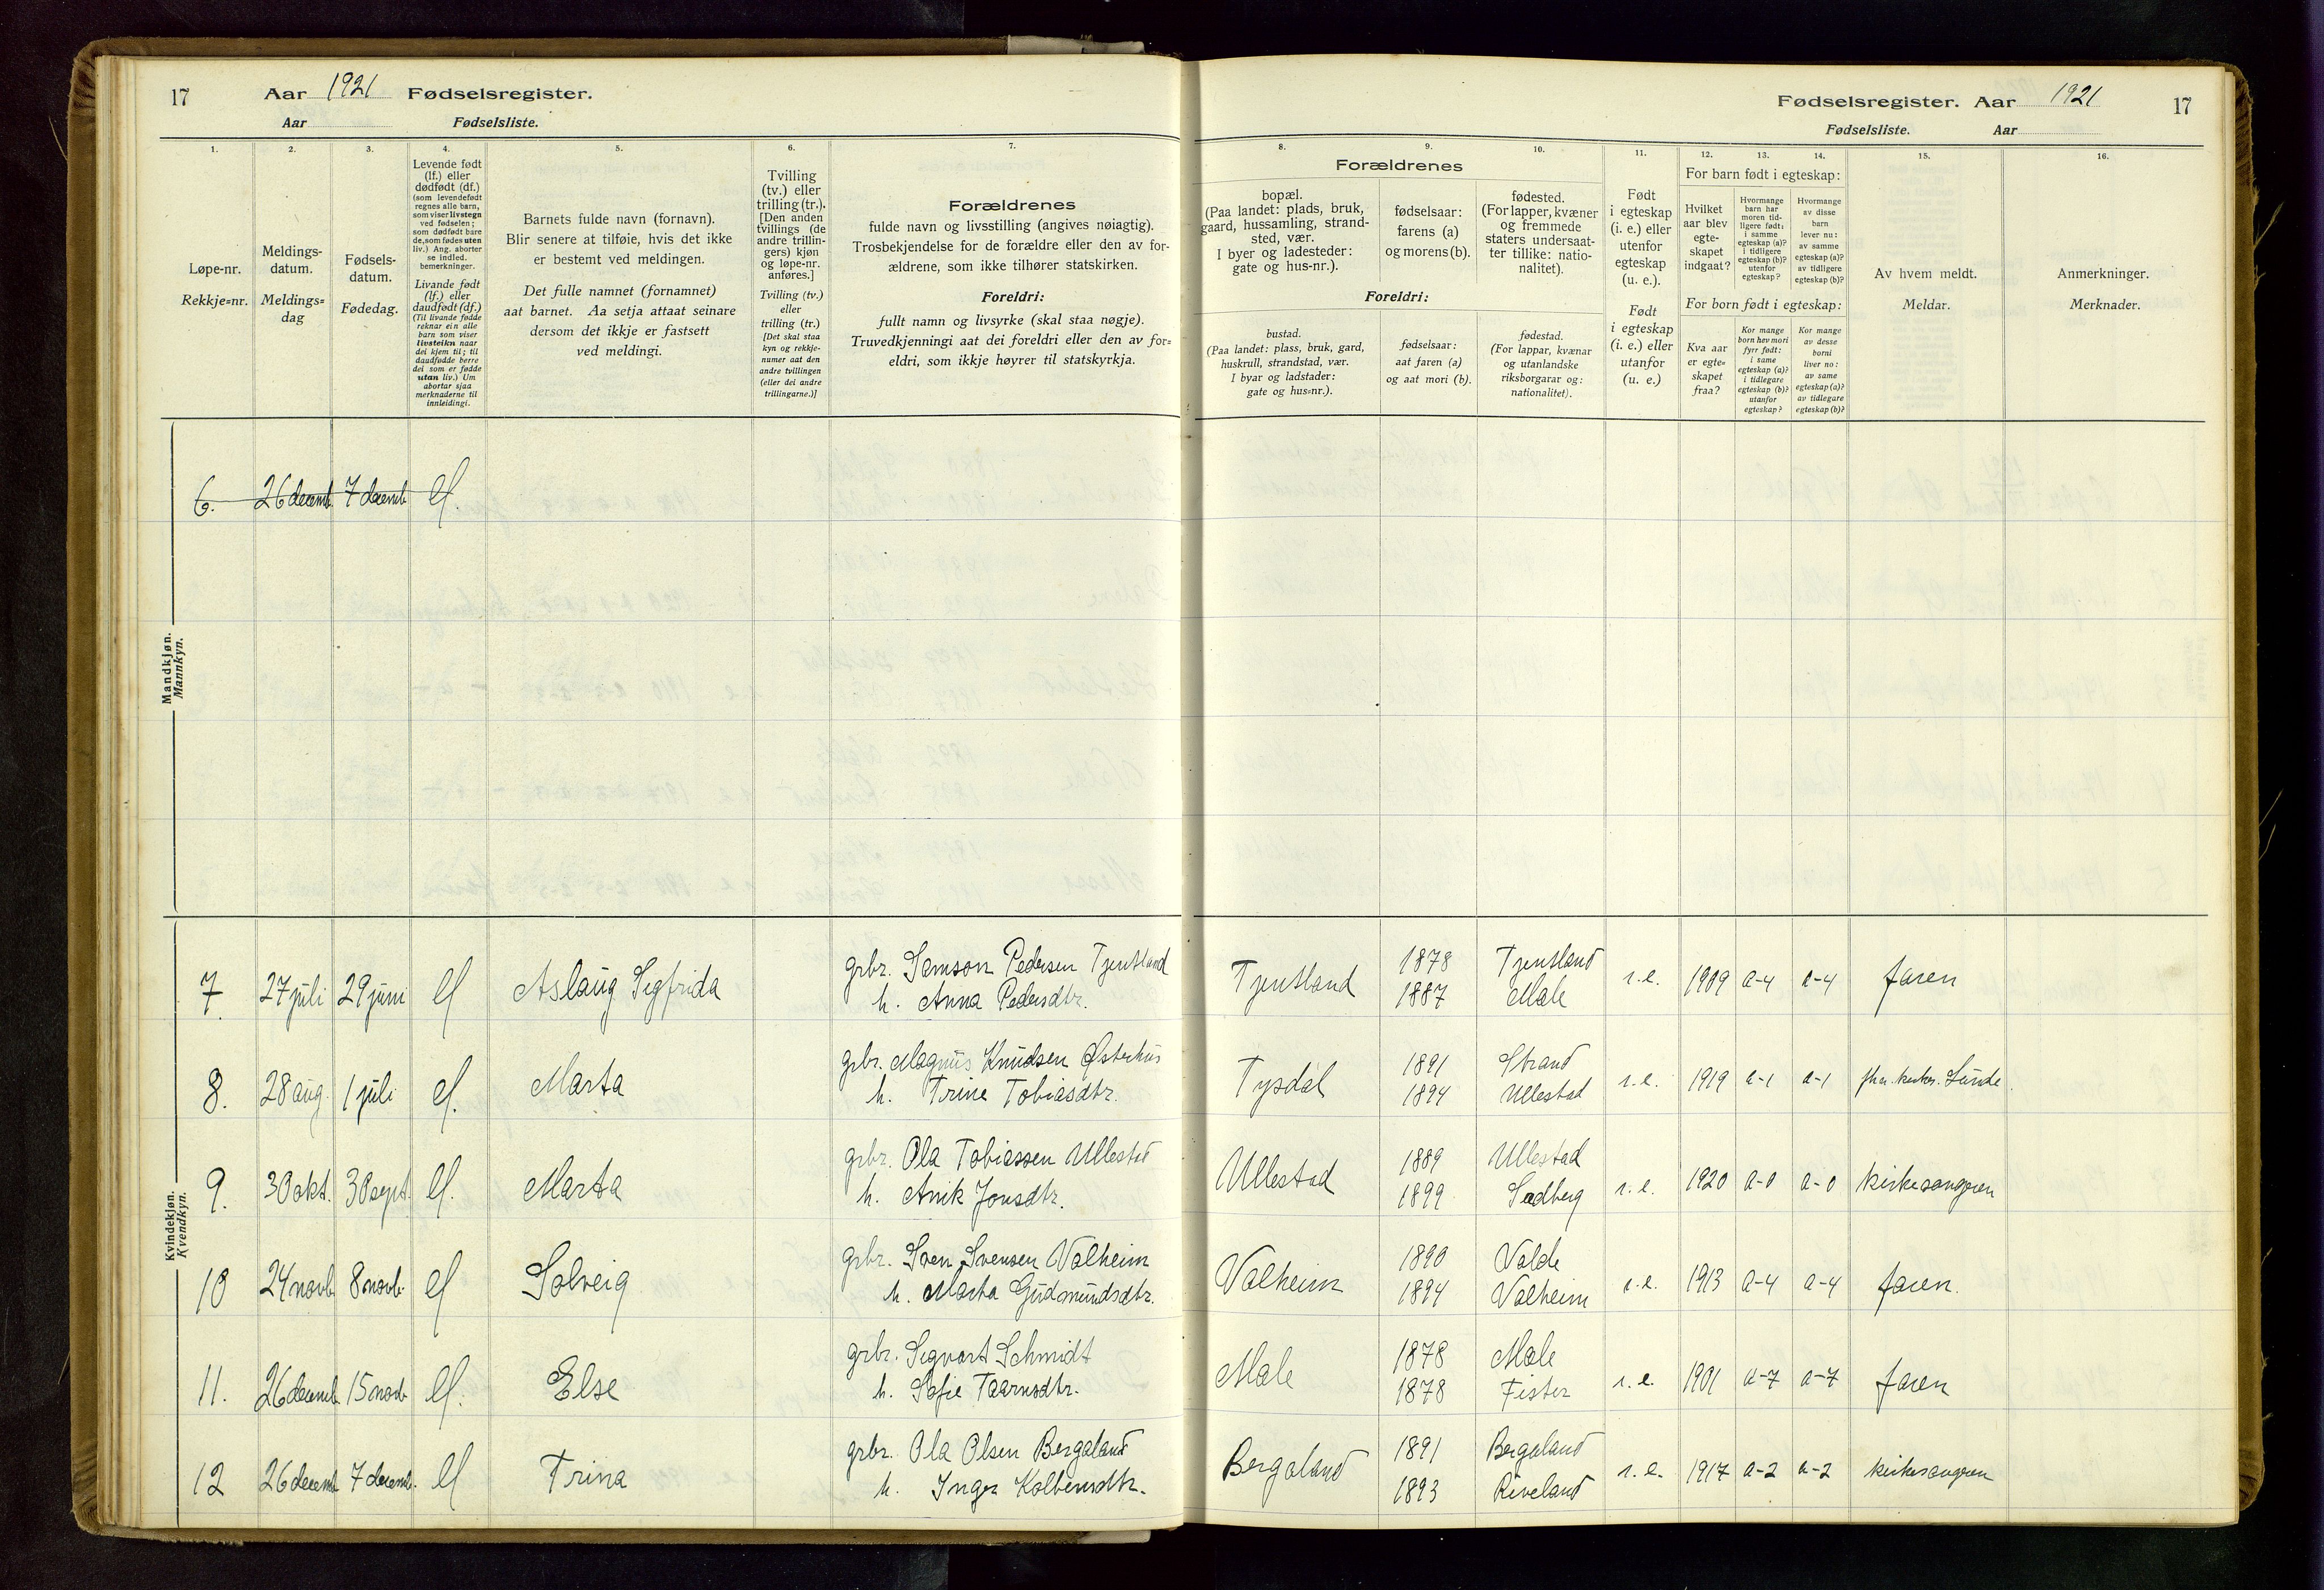 17 Aar 1921 Fødselsregister.
Aar Fødselsliste.
Fødselsregister. Aar 1921 17
Fødselsliste. Aar
1. 2. 3. 4. 5. 6. 7.
Løpe-nr.
Rekkje=nr.
Meldings-
datum.
Meldings=
dag
Fødsels-
datum.
Fødedag.
Levende født
(lf.) eller
dødfødt (df.)
(som levendefødt
regnes alle barn,
som viser livstegn
ved fødselen;
som dødfødt bare
de, som fødes uten
liv.) Ang. aborter
se indled.
bemerkninger.
Livande født
(lf.) eller
daudfødt (df.)
(Til livande fødde
reknar ein alle
barn som viser
livsteikn naar
dei kjem til; til
daudfødde berre
dei som er fødde
utan liv.) Um
abortar sjaa
merknaderne til
innleidingi.
Barnets fulde navn (fornavn).
Blir senere at tilføie, hvis det ikke
er bestemt ved meldingen.
Det fulle namnet (fornamnet)
aat barnet. Aa setja attaat seinare
dersom det ikkje er fastsett
ved meldingi.
Tvilling
(tv.) eller
trilling (tr.).
[Den anden
tvillings (de
andre trillin-
gers) kjøn
og løpe-nr.
anføres.]
Tvilling (tv.)
eller
trilling (tr.)
[Det skal staa
kyn og rekkje-
numer aat den
andre tvillingen
(eller dei andre
trillingarne.)]
Forældrenes
fulde navn og livsstilling (angives nøiagtig).
Trosbekjendelse for de forældre eller den av for-
ældrene, som ikke tilhører statskirken.
Foreldri:
fullt namn og livsyrke (skal staa nøgje).
Truvedkjenningi aat dei foreldri eller den av for=
eldri, som ikkje høyrer til statskyrkja.
8. 9. 10. 11. 12. 13. 14. 15. 16.
Forældrenes
bopæl.
(Paa landet: plads, bruk,
gaard, hussamling, strand-
sted, vær.
I byer og ladesteder:
gate og hus-nr.).
fødselsaar:
farens (a)
og morens (b).
fødested.
(For lapper, kvæner
og fremmede
staters undersaat-
ter tillike: natio-
nalitet).
Foreldri:
bustad.
(Paa landet: plass, bruk, gard,
huskrull, strandstad, vær.
I byar og ladstader:
gate og hus=nr.).
fødselsaar:
aat faren (a)
og aat mori (b).
fødestad.
(For lappar, kvænar
og utanlandske
riksborgarar og:
nationalitet).
Født
i egteskap
(i. e.) eller
utenfor
egteskap
(u. e.).
Født
i egteskap
(i. e.) eller
utanfor
(u. e.)
For barn født i egteskap:
Hvilket
aar blev
egte-
skapet
indgaat?
Hvormange
barn har
moren tid-
ligere født:
i samme
egteskap (a)?
i tidligere
egteskap (b)?
utenfor
egteskap?
Hvormange
av disse
barn
lever nu:
av samme
egteskap (a)?
av tidligere
egteskap (b)?
For born født i egteskap:
Kva aar
er egte=
skapet
fraa?
Kor mange
born hev mori
fyrr født:
i same
egteskap (a)?
i tidlegare
egteskap (b)?
utanfor
egteskap?
Kor mange
av desse
borni
liver no:
av same
egteskap (a)?
av tidlegare
egteskap (b)?
Av hvem meldt.
Meldar.
Anmerkninger.
Merknader.
Mandkjøn.
Mannkyn.
6. 26 decemb. 7 decemb. lf.
Kvindekjøn.
Kvendkyn.
7. 27 juli 29 juni lf Aslaug Sigfrida grbr. Samson Pedersen Tjentland Tjentland 1878 Tjentland i.e. 1909 a-4 a-4 faren
h. Anna Pedersdtr. 1887 Mæle
8. 28 aug. 1 juli lf. Marta grbr. Magnus Knudsen Østerhus Tysdal 1891 Strand i.e. 1919 a-1 a-1 Lunde.
h. Trine Tobiasdtr. 1894 Ullestad
9. 30 okt. 30 sept. lf. Marta grbr. Ola Tobiassen Ullestad Ullestad 1889 Ullestad i.e. 1920 a-0 a-0 kirkesangeren
h. Anik Jonsdtr. 1899 Sedberg
10 24 novb. 8 novb. lf Solveig grbr. Sven Svensen Valheim Valheim 1890 Valde i.e. 1913 a-4 a-4 faren.
h. Marta Gudmundsdtr. 1894 Valheim
11. 26 decemb. 15 novb. lf. Else grbr. Sigvart Schmidt Mæle 1878 Mæle i.e. 1901 a-7 a-7 faren
h. Sofie Taarnsdtr. 1878 Fister
12 26 decemb. 7 decemb. lf Trina grbr. Ola Olsen Bergaland Bergaland 1891 Bergaland i.e. 1917 a-2 a-2 kirkesangeren
h. Inger Kolbensdtr. 1893 Riveland